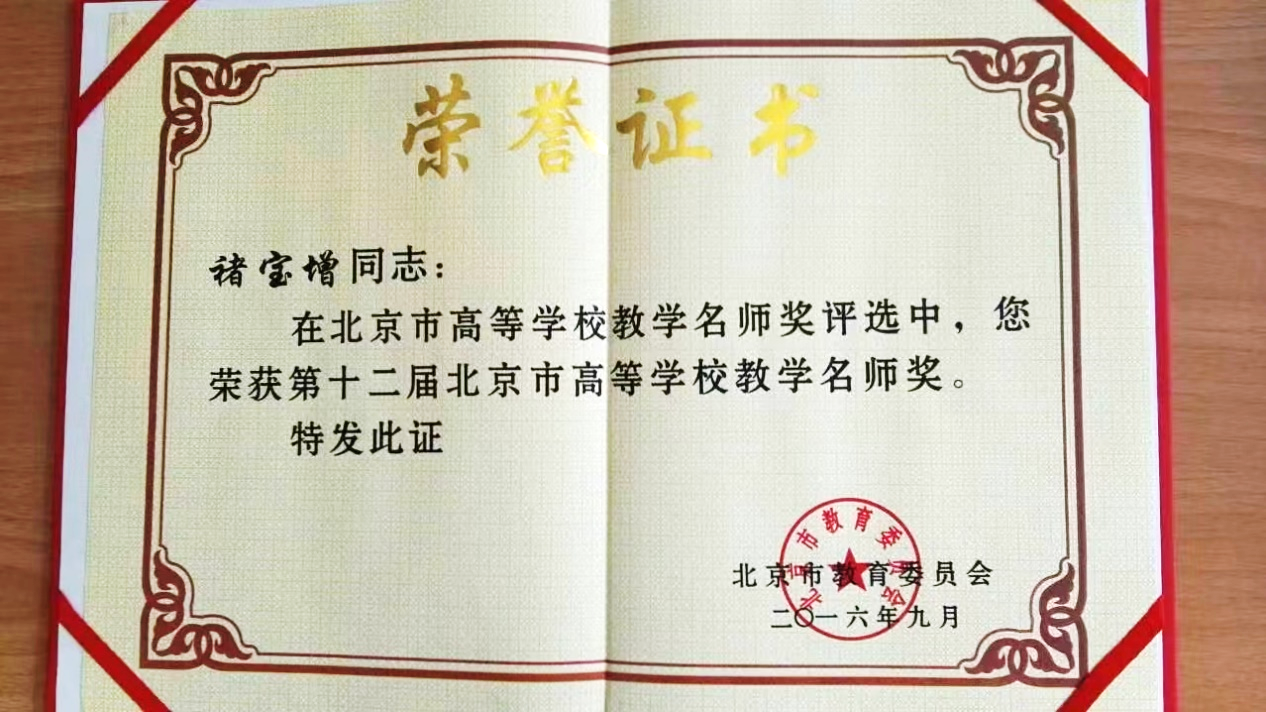 荣誉证书
褚宝增同志：
在北京市高等学校教学名师奖评选中，您
荣获第十二届北京市高等学校教学名师奖。
特发此证
北京市教育委员会
北京市教育委员会
二〇一六年九月